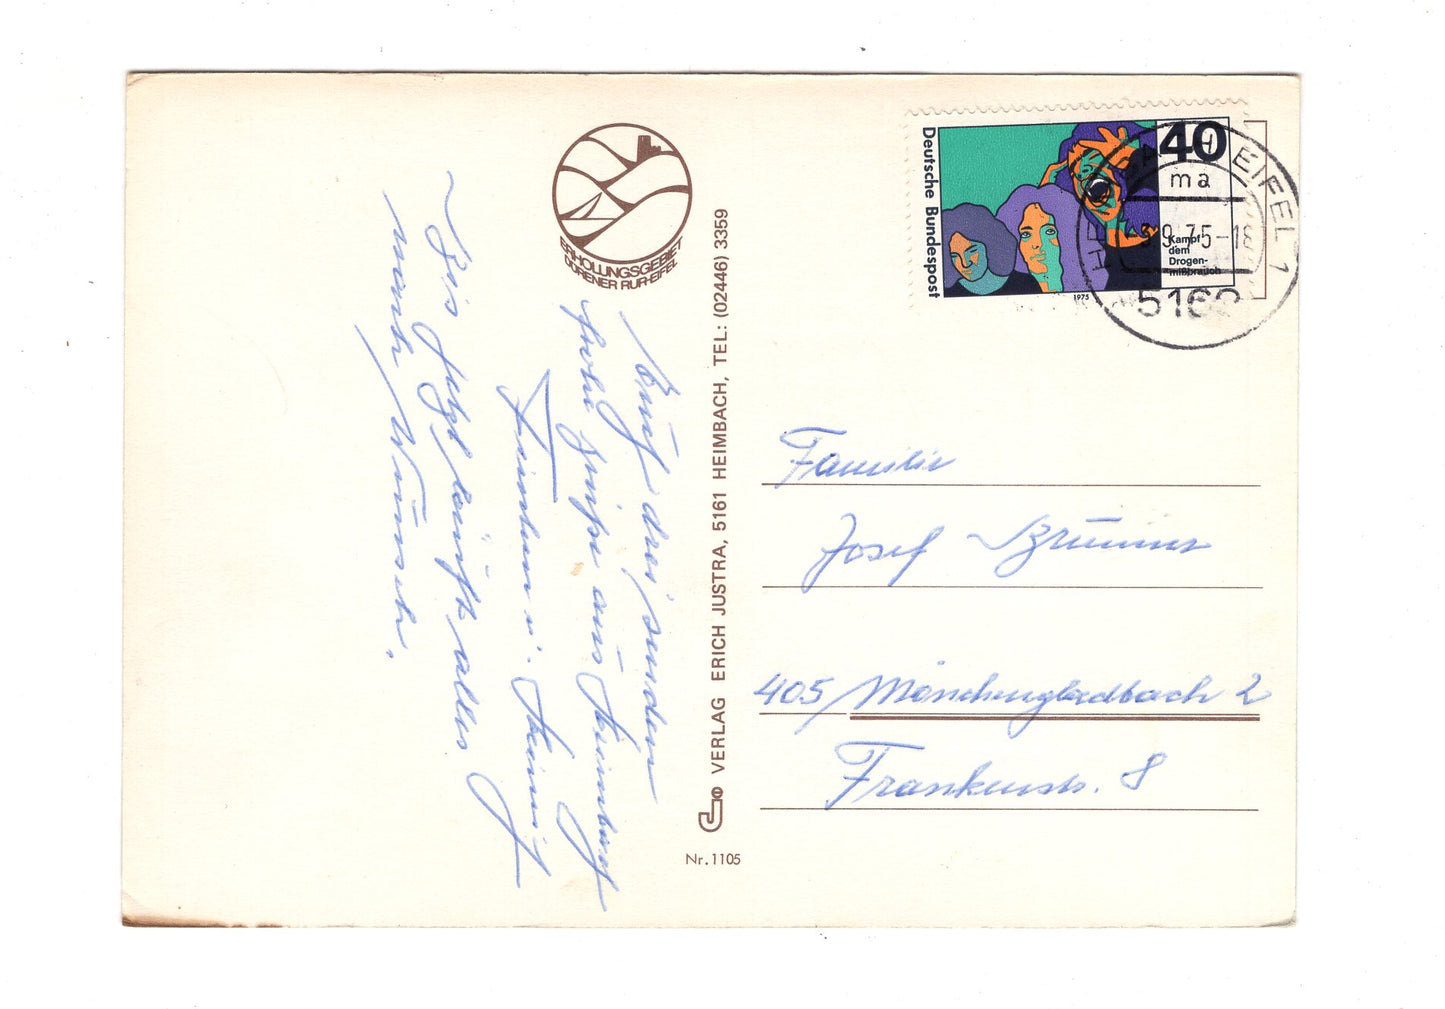 ERHOLUNGSGEBIET
DÜRENER RUR-EIFEL
Deutsche Bundespost
40
Kampf
dem
Drogen-
mißbrauch
1975
EIFEL 1
ma
9.75-18
516
Auch drei senden
frohe Grüße aus Heimbach
Bis jetzt läuft alles
nach Wunsch.
VERLAG ERICH JUSTRA, 5161 HEIMBACH, TEL: (02446) 3359
Nr. 1105
Familie
Josef Brunner
405/Mönchengladbach 2
Frankenstr. 8